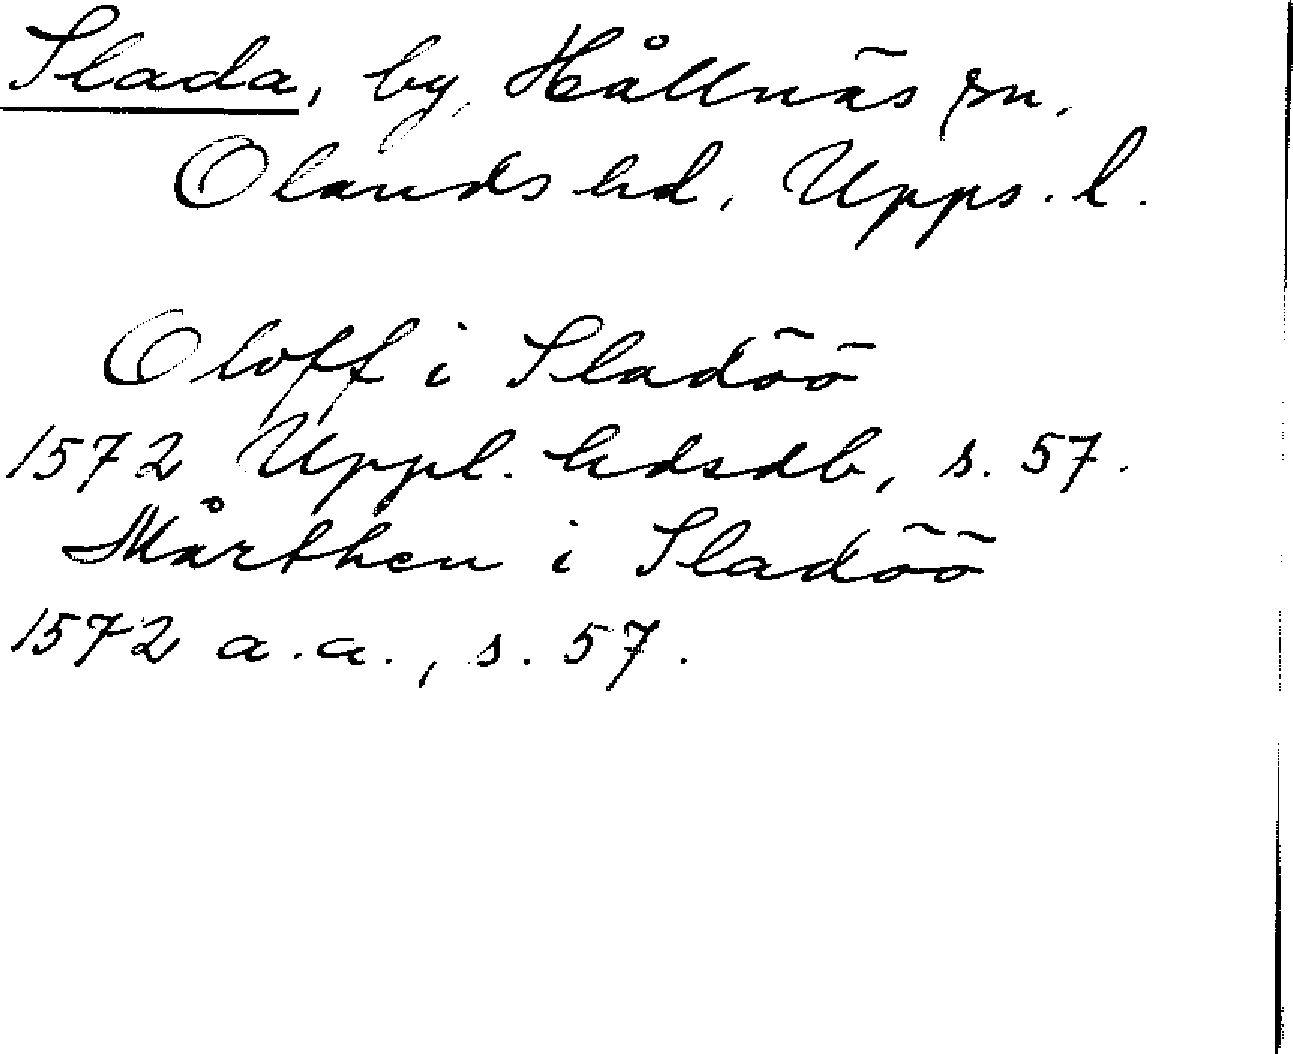 Slada, by, Hållnäs sn.
Olands hd, Upps. l.
Oloff i Sladöö
1572 Uppl. hdsdb, s. 57.
Mårthen i Sladöö
1572 a.a., s. 57.